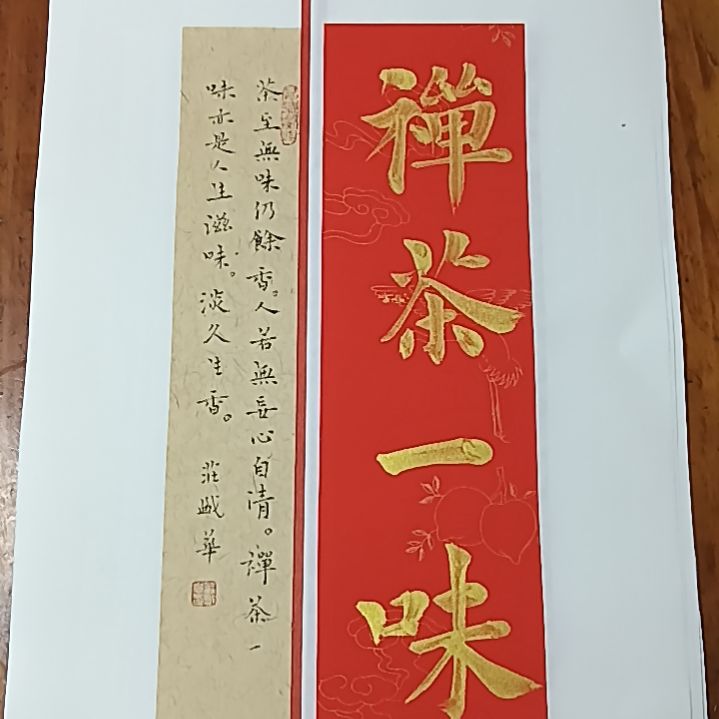 禪茶一味
茶至無味仍餘香。人若無妄心自清。禪茶一
味亦是人生滋味。淡久生香。
莊 華